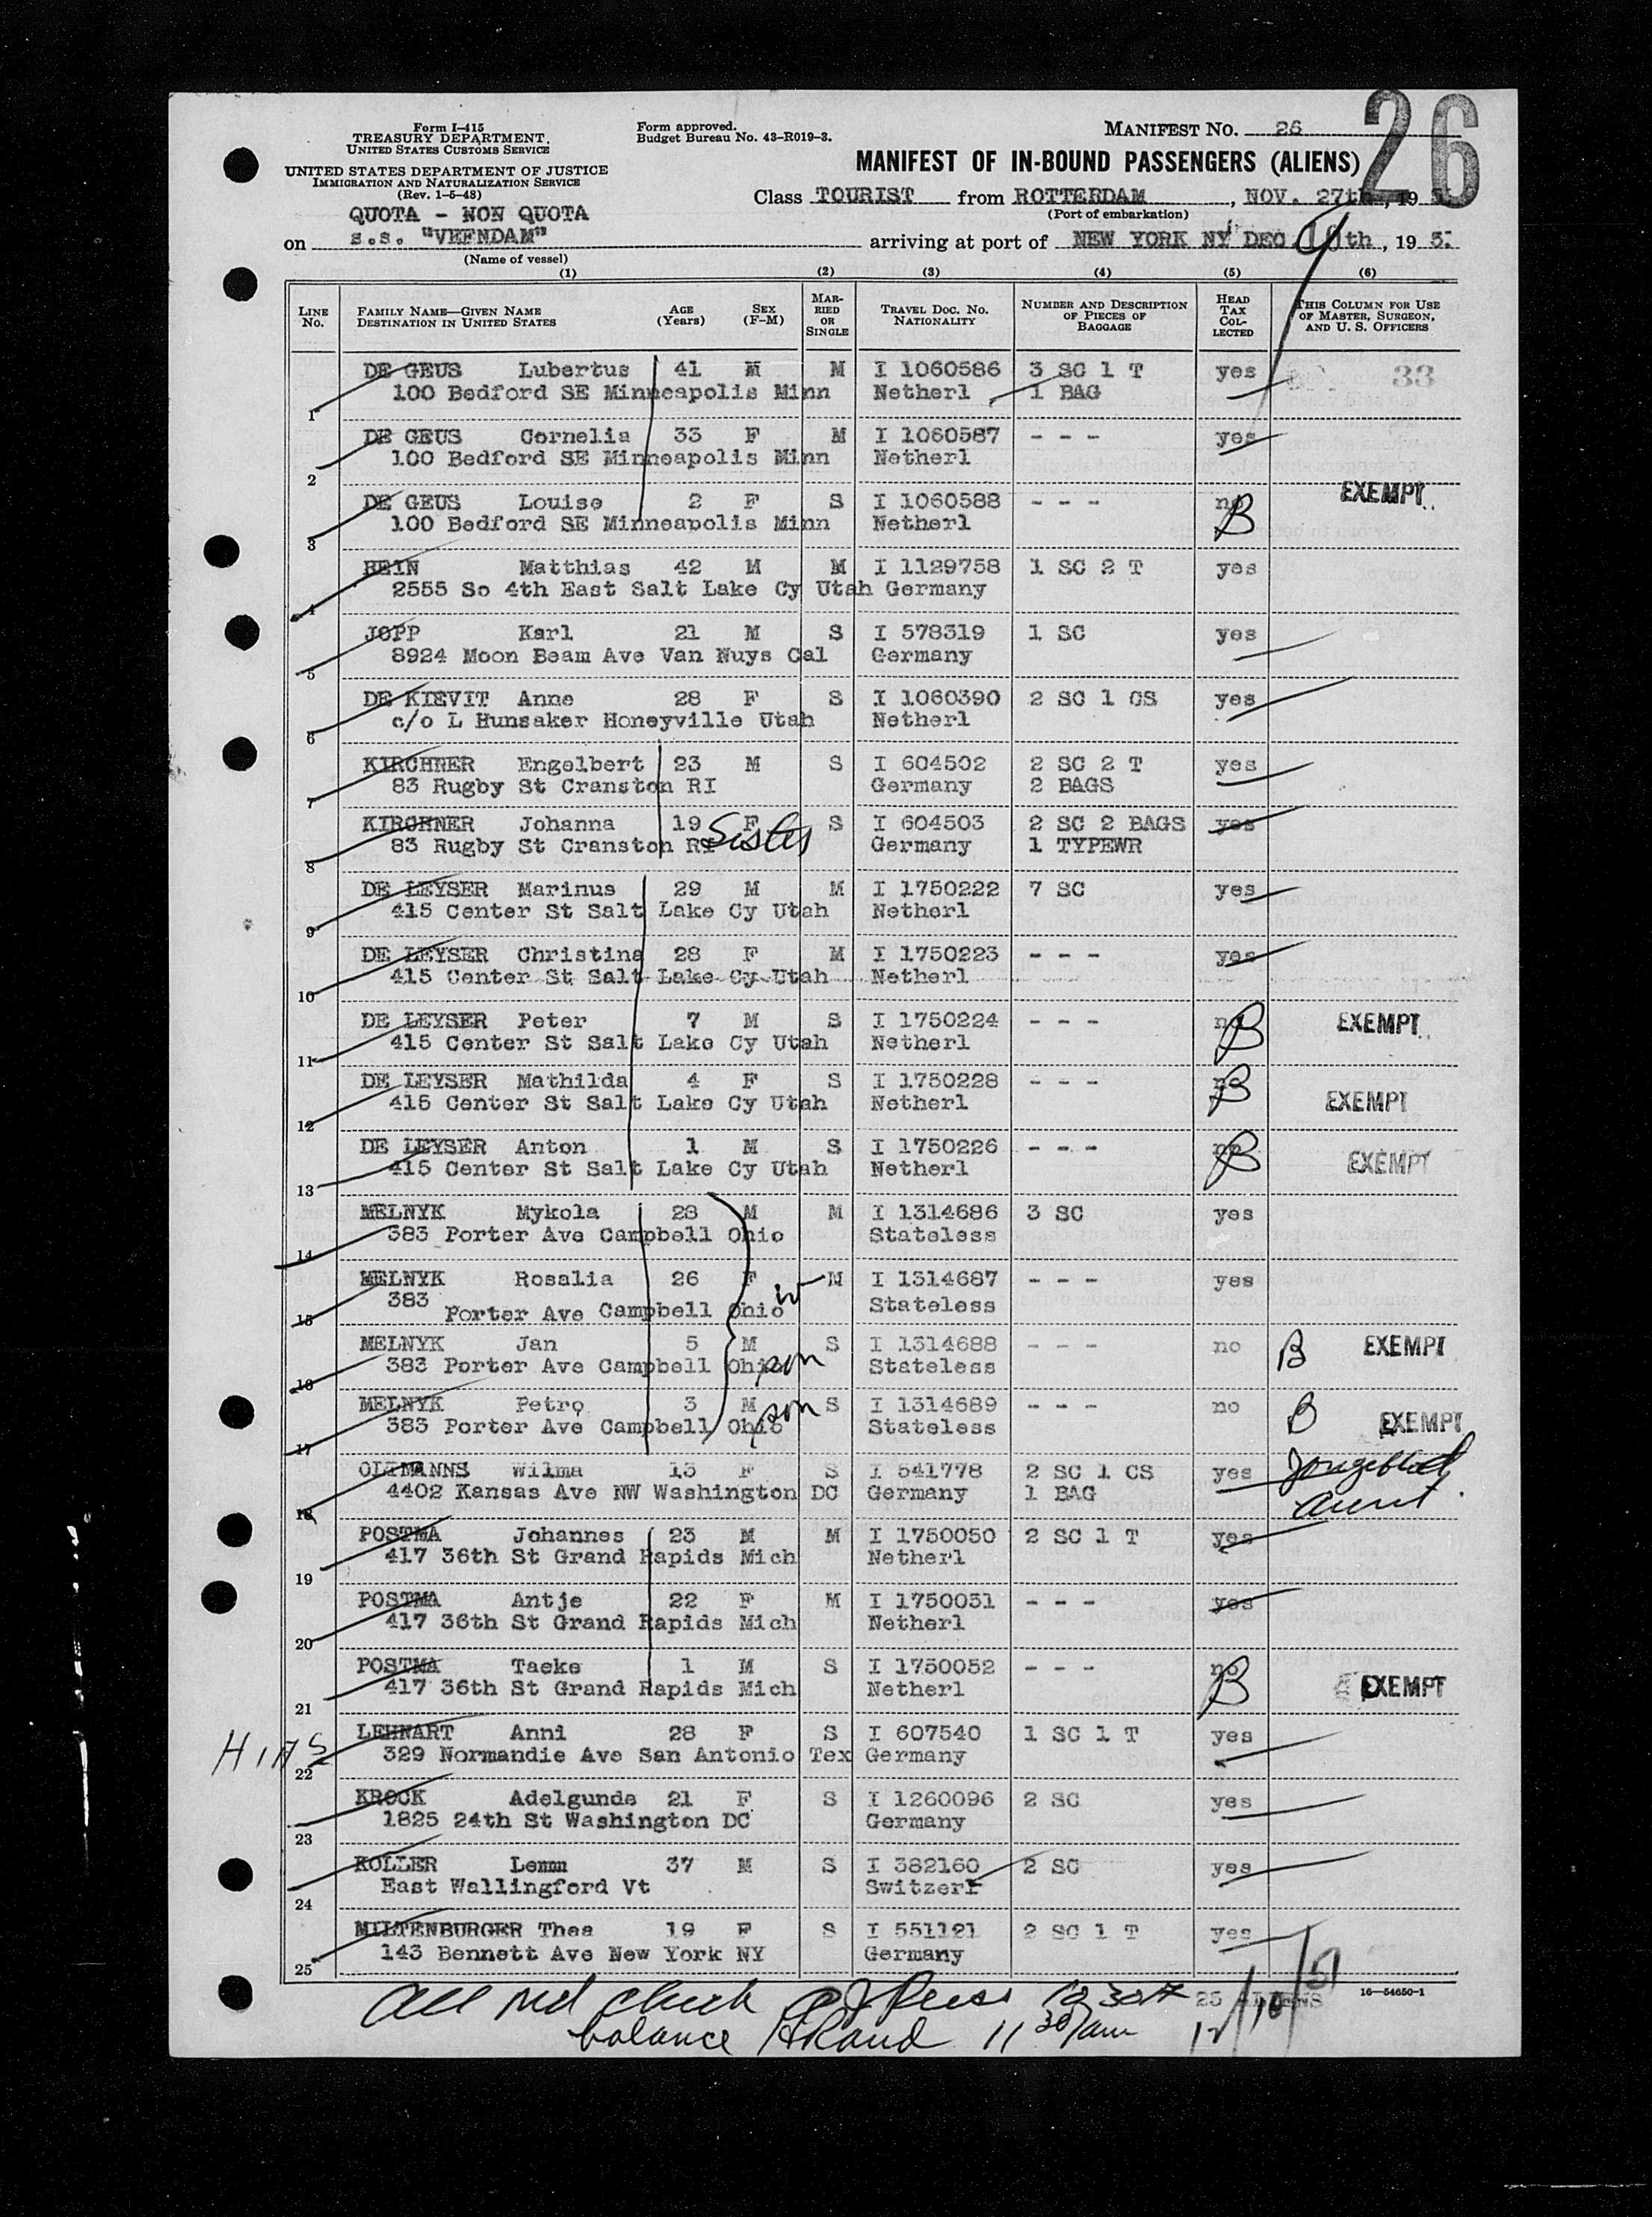 26
Form I-415
TREASURY DEPARTMENT,
UNITED STATES CUSTOMS SERVICE
UNITED STATES DEPARTMENT OF JUSTICE
IMMIGRATION AND NATURALIZATION SERVICE
(Rev. 1-5-48)
Form approved.
Budget Bureau No. 43-R019-3.
MANIFEST NO. 26
MANIFEST OF IN-BOUND PASSENGERS (ALIENS)
Class TOURIST from ROTTERDAM, NOV. 27th, 19
(Port of embarkation)
QUOTA - NON QUOTA
on s.s. "VEENDAM" arriving at port of NEW YORK NY DEC 10th, 19 5
(Name of vessel)
(1) (2) (3) (4) (5) (6)
LINE NO. FAMILY NAME—GIVEN NAME DESTINATION IN UNITED STATES AGE (Years) SEX (F-M) MARRIED OR SINGLE TRAVEL DOC. NO. NATIONALITY NUMBER AND DESCRIPTION OF PIECES OF BAGGAGE HEAD TAX COLLECTED THIS COLUMN FOR USE OF MASTER, SURGEON, AND U. S. OFFICERS
DE GEUS Lubertus 41 M M I 1060586 3 SC 1 T yes 33
1 100 Bedford SE Minneapolis Minn Netherl 1 BAG
DE GEUS Cornelia 33 F M I 1060587 - - - yes
2 100 Bedford SE Minneapolis Minn Netherl
DE GEUS Louise 2 F S I 1060588 - - - no B EXEMPT
3 100 Bedford SE Minneapolis Minn Netherl
HEIN Matthias 42 M M I 1129758 1 SC 2 T yes
4 2555 So 4th East Salt Lake Cy Utah Germany
JOPP Karl 21 M S I 578319 1 SC yes
5 8924 Moon Beam Ave Van Nuys Cal Germany
DE KIEVIT Anne 28 F S I 1060390 2 SC 1 CS yes
6 c/o L Hunsaker Honeyville Utah Netherl
KIRCHNER Engelbert 23 M S I 604502 2 SC 2 T yes
7 83 Rugby St Cranston RI Germany 2 BAGS
KIRCHNER Johanna 19 F Sister S I 604503 2 SC 2 BAGS yes
8 83 Rugby St Cranston RI Germany 1 TYPEWR
DE LEYSER Marinus 29 M M I 1750222 7 SC yes
9 415 Center St Salt Lake Cy Utah Netherl
DE LEYSER Christina 28 F M I 1750223 - - - yes
10 415 Center St Salt Lake Cy Utah Netherl
DE LEYSER Peter 7 M S I 1750224 - - - no B EXEMPT
11 415 Center St Salt Lake Cy Utah Netherl
DE LEYSER Mathilda 4 F S I 1750228 - - - no B EXEMPT
12 415 Center St Salt Lake Cy Utah Netherl
DE LEYSER Anton 1 M S I 1750226 - - - no B EXEMPT
13 415 Center St Salt Lake Cy Utah Netherl
MELNYK Mykola 28 M M I 1314686 3 SC yes
14 383 Porter Ave Campbell Ohio Stateless
MELNYK Rosalia 26 F w M I 1314687 - - - yes
15 383 Porter Ave Campbell Ohio Stateless
MELNYK Jan 5 M S I 1314688 - - - no B EXEMPT
16 383 Porter Ave Campbell Ohio son Stateless
MELNYK Petro 3 M son S I 1314689 - - - no B EXEMPT
17 383 Porter Ave Campbell Ohio Stateless
OLTMANNS Wilma 13 F S I 541778 2 SC 1 CS yes
18 4402 Kansas Ave NW Washington DC Germany 1 BAG aunt.
POSTMA Johannes 23 M M I 1750050 2 SC 1 T yes
19 417 36th St Grand Rapids Mich Netherl
POSTMA Antje 22 F M I 1750051 - - - yes
20 417 36th St Grand Rapids Mich Netherl
POSTMA Taeke 1 M S I 1750052 - - - no B EXEMPT
21 417 36th St Grand Rapids Mich Netherl
HIAS LEHNART Anni 28 F S I 607540 1 SC 1 T yes
22 329 Normandie Ave San Antonio Tex Germany
KROCK Adelgunde 21 F S I 1260096 2 SC yes
23 1825 24th St Washington DC Germany
KOLLER Lemm 37 M S I 382160 2 SC yes
24 East Wallingford Vt Switzerl
MILTENBURGER Thea 19 F S I 551121 2 SC 1 T yes
25 143 Bennett Ave New York NY Germany
All red check 10 30A 25 ALIENS 16-54650-1
balance 11 30/am 12/10/51